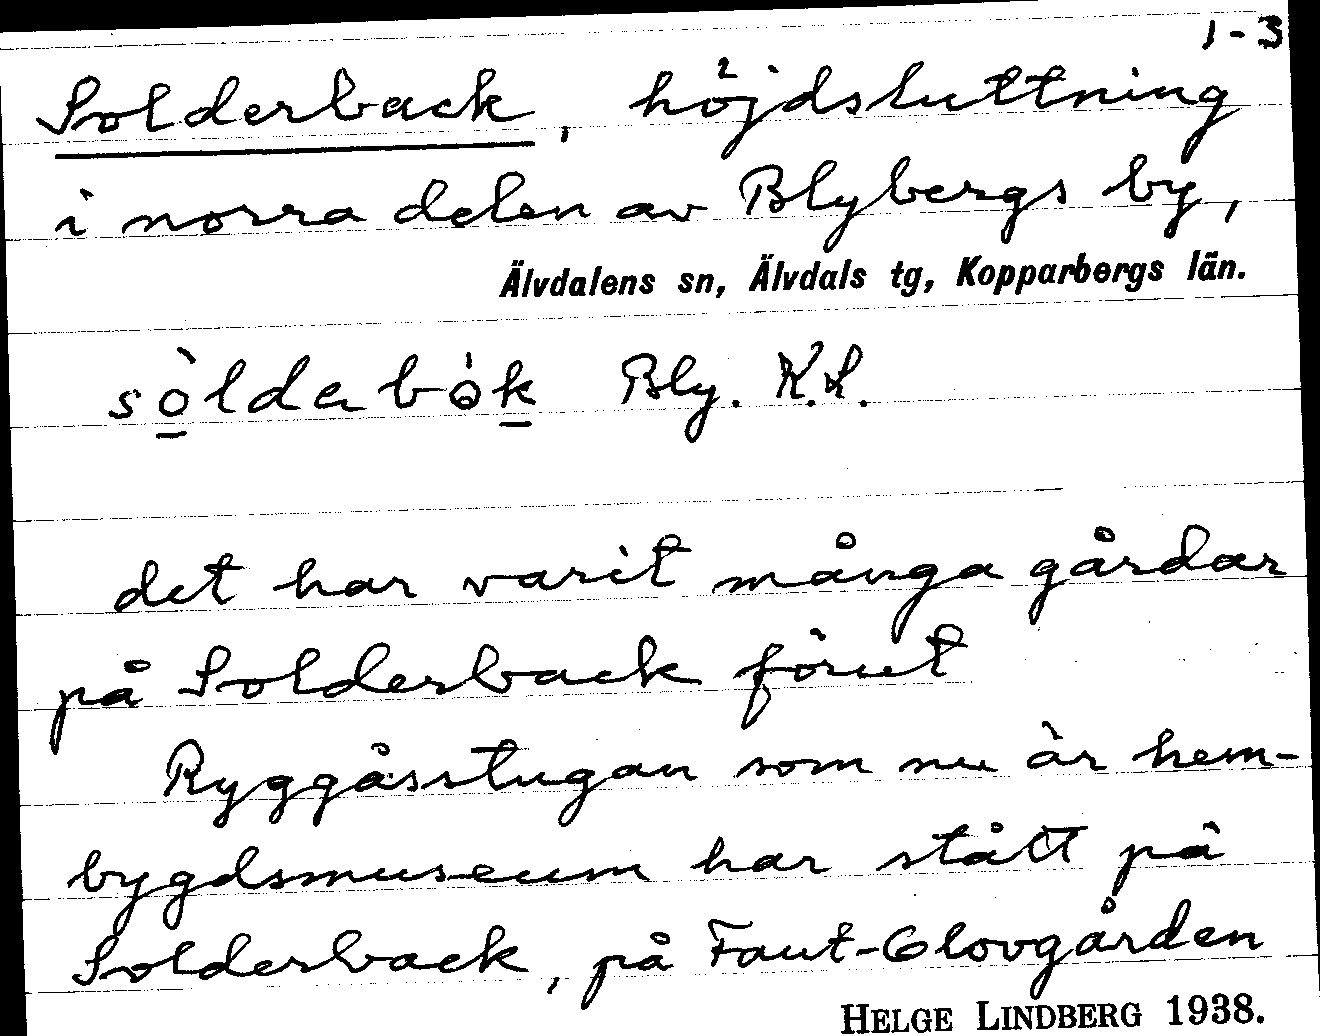 1-3
Solderback, höjdsluttning
i norra delen av Blybergs by,
Älvdalens sn, Älvdals tg, Kopparbergs län.
Bly. K.L.
det har varit många gårdar
på Solderback förut
Ryggåsstugan som nu är hem-
bygdsmuseum har stått på
Solderback, på Faut-Olovgården
HELGE LINDBERG 1938.